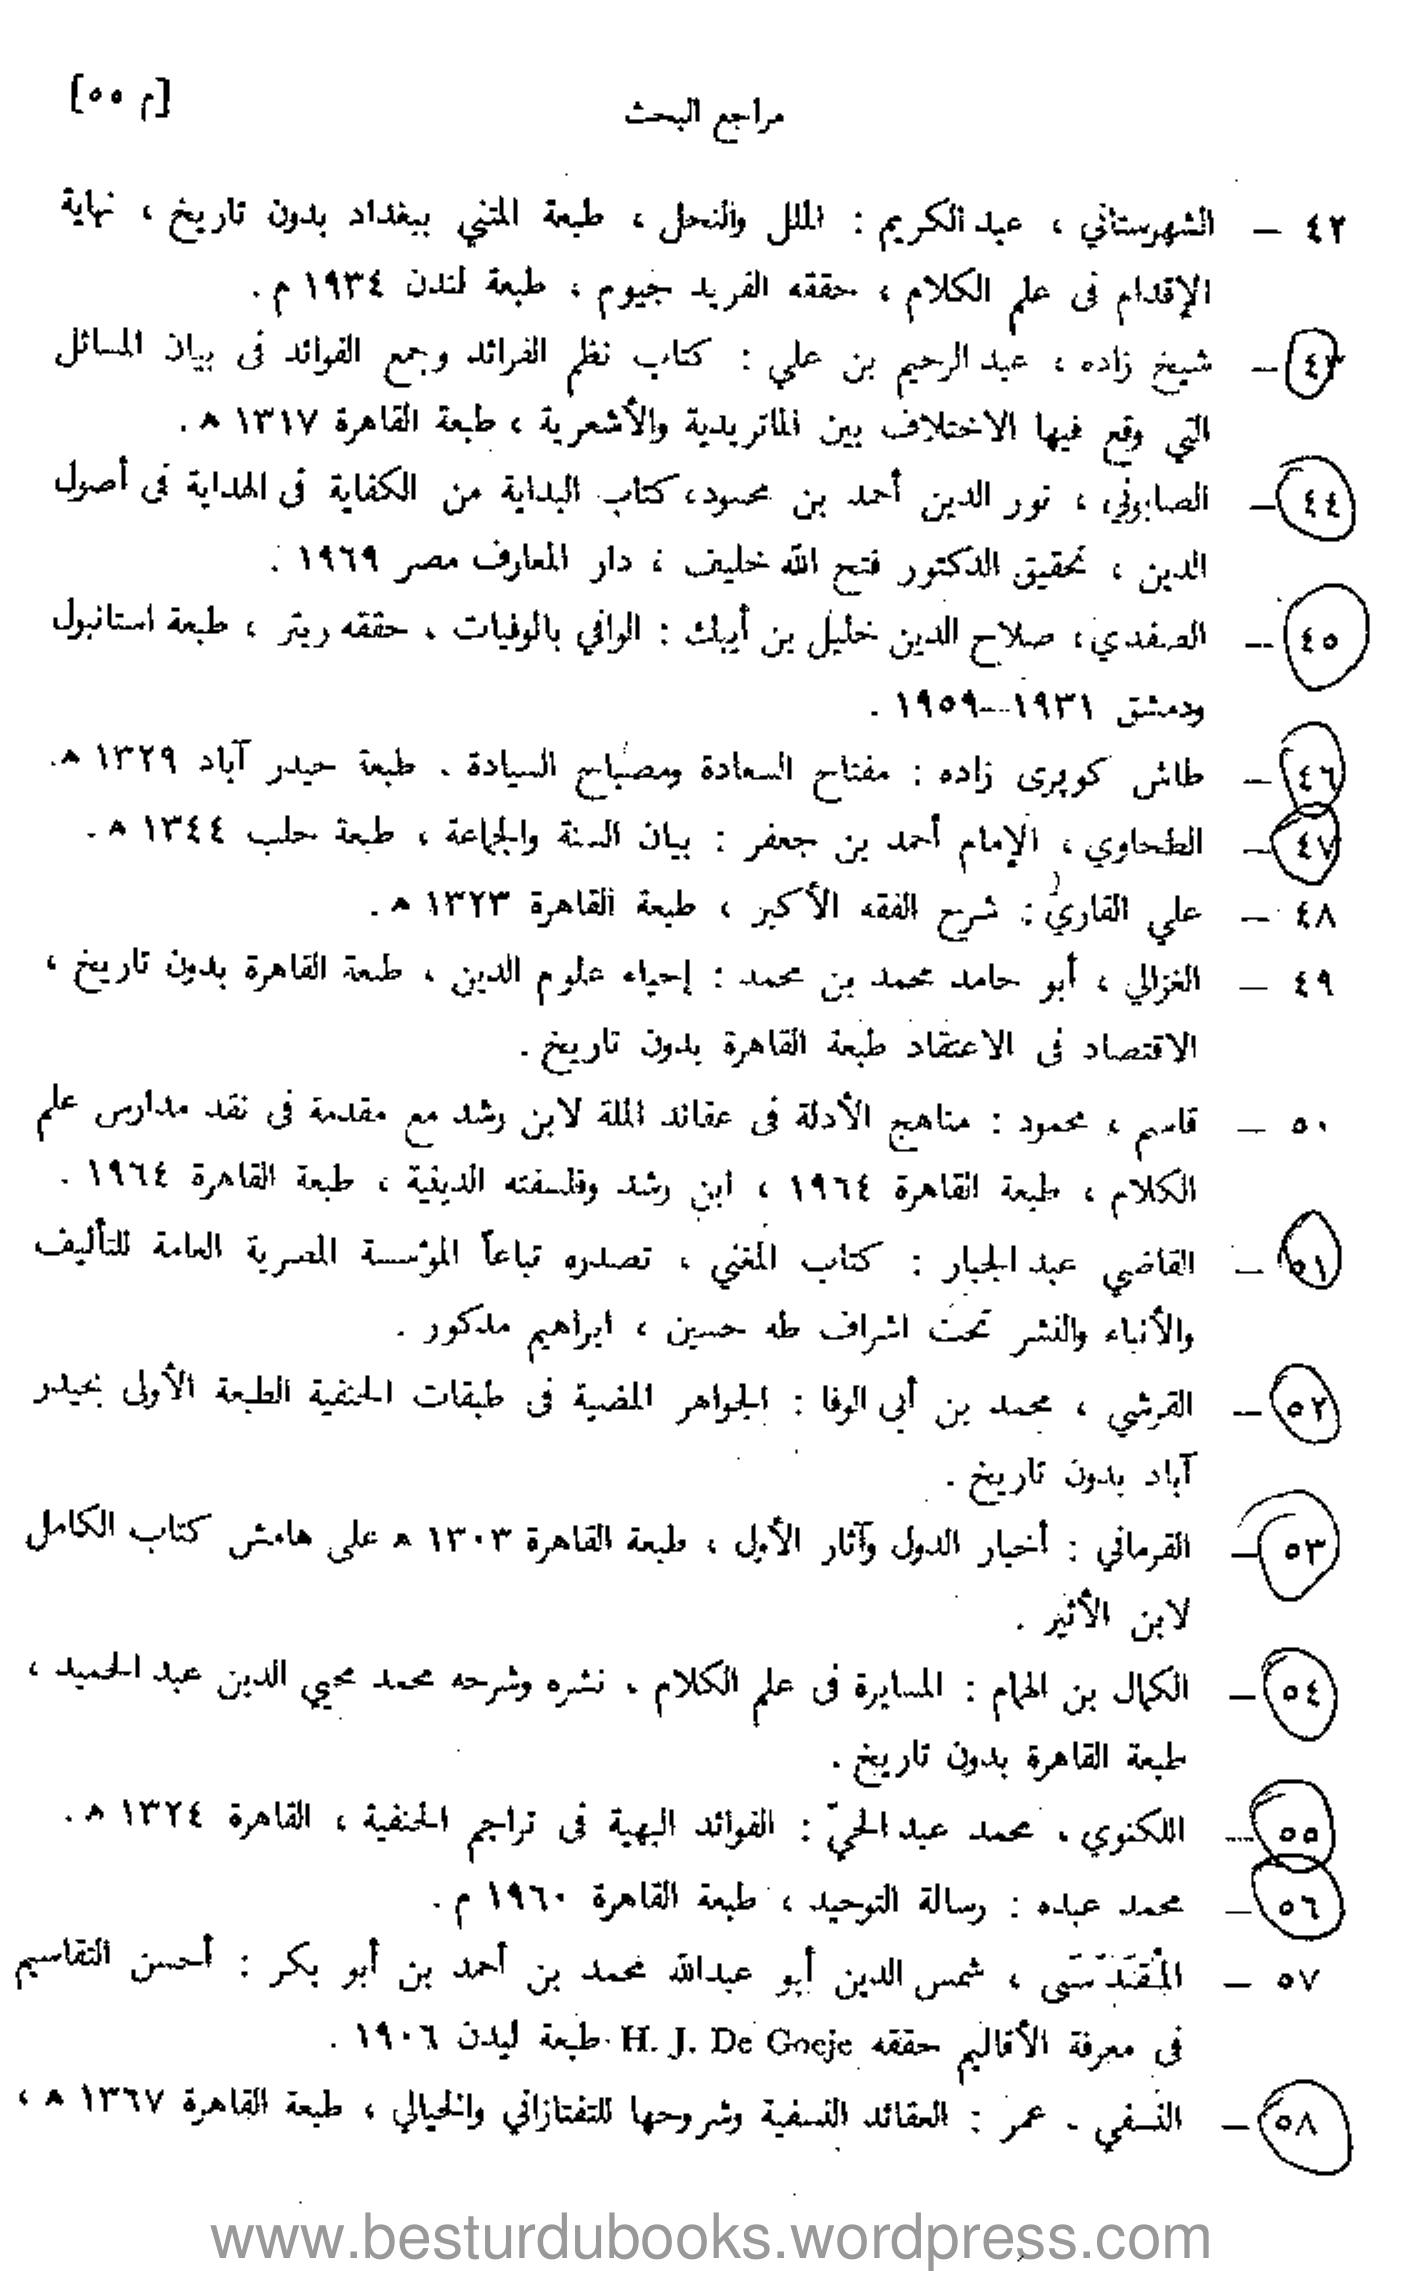 [م ٥٥]
مراجع البحث
٤٢ – الشهرستاني ، عبد الكريم : الملل والنحل ، طبعة المثني ببغداد بدون تاريخ ، نهاية
الإقدام فى علم الكلام ، حققه الفريد جيوم ، طبعة لندن ١٩٣٤ م .
٤٣ – شيخ زاده ، عبد الرحيم بن علي : كتاب نظم الفرائد وجمع الفوائد فى بيان المسائل
التي وقع فيها الاختلاف بين الماتريدية والأشعرية ، طبعة القاهرة ١٣١٧ ه .
٤٤ – الصابوني ، نور الدين أحمد بن محمود، كتاب البداية من الكفاية فى الهداية فى أصول
الدين ، تحقيق الدكتور فتح الله خليف ، دار المعارف مصر ١٩٦٩ .
٤٥ – الصفدي ، صلاح الدين خليل بن أيبك : الوافي بالوفيات ، حققه ريتر ، طبعة استانبول
ودمشق ١٩٣١–١٩٥٩ .
٤٦ – طاش كوپرى زاده : مفتاح السعادة ومصباح السيادة . طبعة حيدر آباد ١٣٢٩ ه .
٤٧ – الطحاوي ، الإمام أحمد بن جعفر : بيان السنة والجماعة ، طبعة حلب ١٣٤٤ ه .
٤٨ – علي القاريُ : شرح الفقه الأكبر ، طبعة القاهرة ١٣٢٣ ه .
٤٩ – الغزالي ، أبو حامد محمد بن محمد : إحياء علوم الدين ، طبعة القاهرة بدون تاريخ ،
الاقتصاد فى الاعتقاد طبعة القاهرة بدون تاريخ .
٥٠ – قاسم ، محمود : مناهج الأدلة فى عقائد الملة لابن رشد مع مقدمة فى نقد مدارس علم
الكلام ، طبعة القاهرة ١٩٦٤ ، ابن رشد وفلسفته الدينية ، طبعة القاهرة ١٩٦٤ .
٥١ – القاضي عبد الجبار : كتاب المغني ، تصدره تباعاً المؤسسة المصرية العامة للتأليف
والأنباء والنشر تحت اشراف طه حسين ، ابراهيم مدكور .
٥٢ – القرشي ، محمد بن أبي الوفا : الجواهر المضية فى طبقات الحنفية الطبعة الأولى بحيدر
آباد بدون تاريخ .
٥٣ – القرماني : أخبار الدول وآثار الأول ، طبعة القاهرة ١٣٠٣ ه على هامش كتاب الكامل
لابن الأثير .
٥٤ – الكمال بن الهمام : المسايرة فى علم الكلام ، نشره وشرحه محمد محيي الدين عبد الحميد ،
طبعة القاهرة بدون تاريخ .
٥٥ – اللكنوي ، محمد عبد الحيّ : الفوائد البهية فى تراجم الحنفية ، القاهرة ١٣٢٤ ه .
٥٦ – محمد عبده : رسالة التوحيد ، طبعة القاهرة ١٩٦٠ م .
٥٧ – المُقَدّسَى ، شمس الدين أبو عبدالله محمد بن أحمد بن أبو بكر : أحسن التقاسيم
فى معرفة الأقاليم حققه H. J. De Goeje طبعة ليدن ١٩٠٦ .
٥٨ – النسفي ، عمر : العقائد النسفية وشروحها للتفتازاني والخيالي ، طبعة القاهرة ١٣٦٧ ه ،
www.besturdubooks.wordpress.com